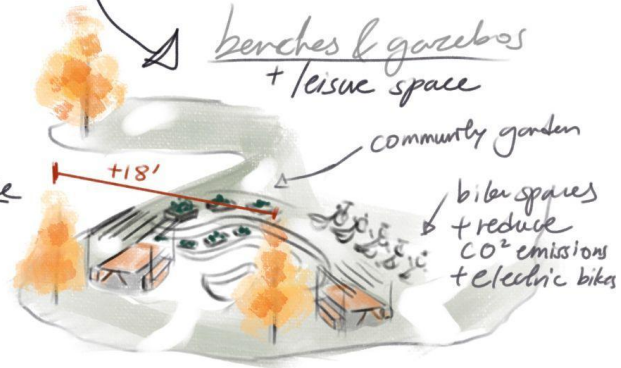 benches & gazebos
+ leisure space
community garden
+18'
bike spaces
+ reduce
CO² emissions
+ electric bikes